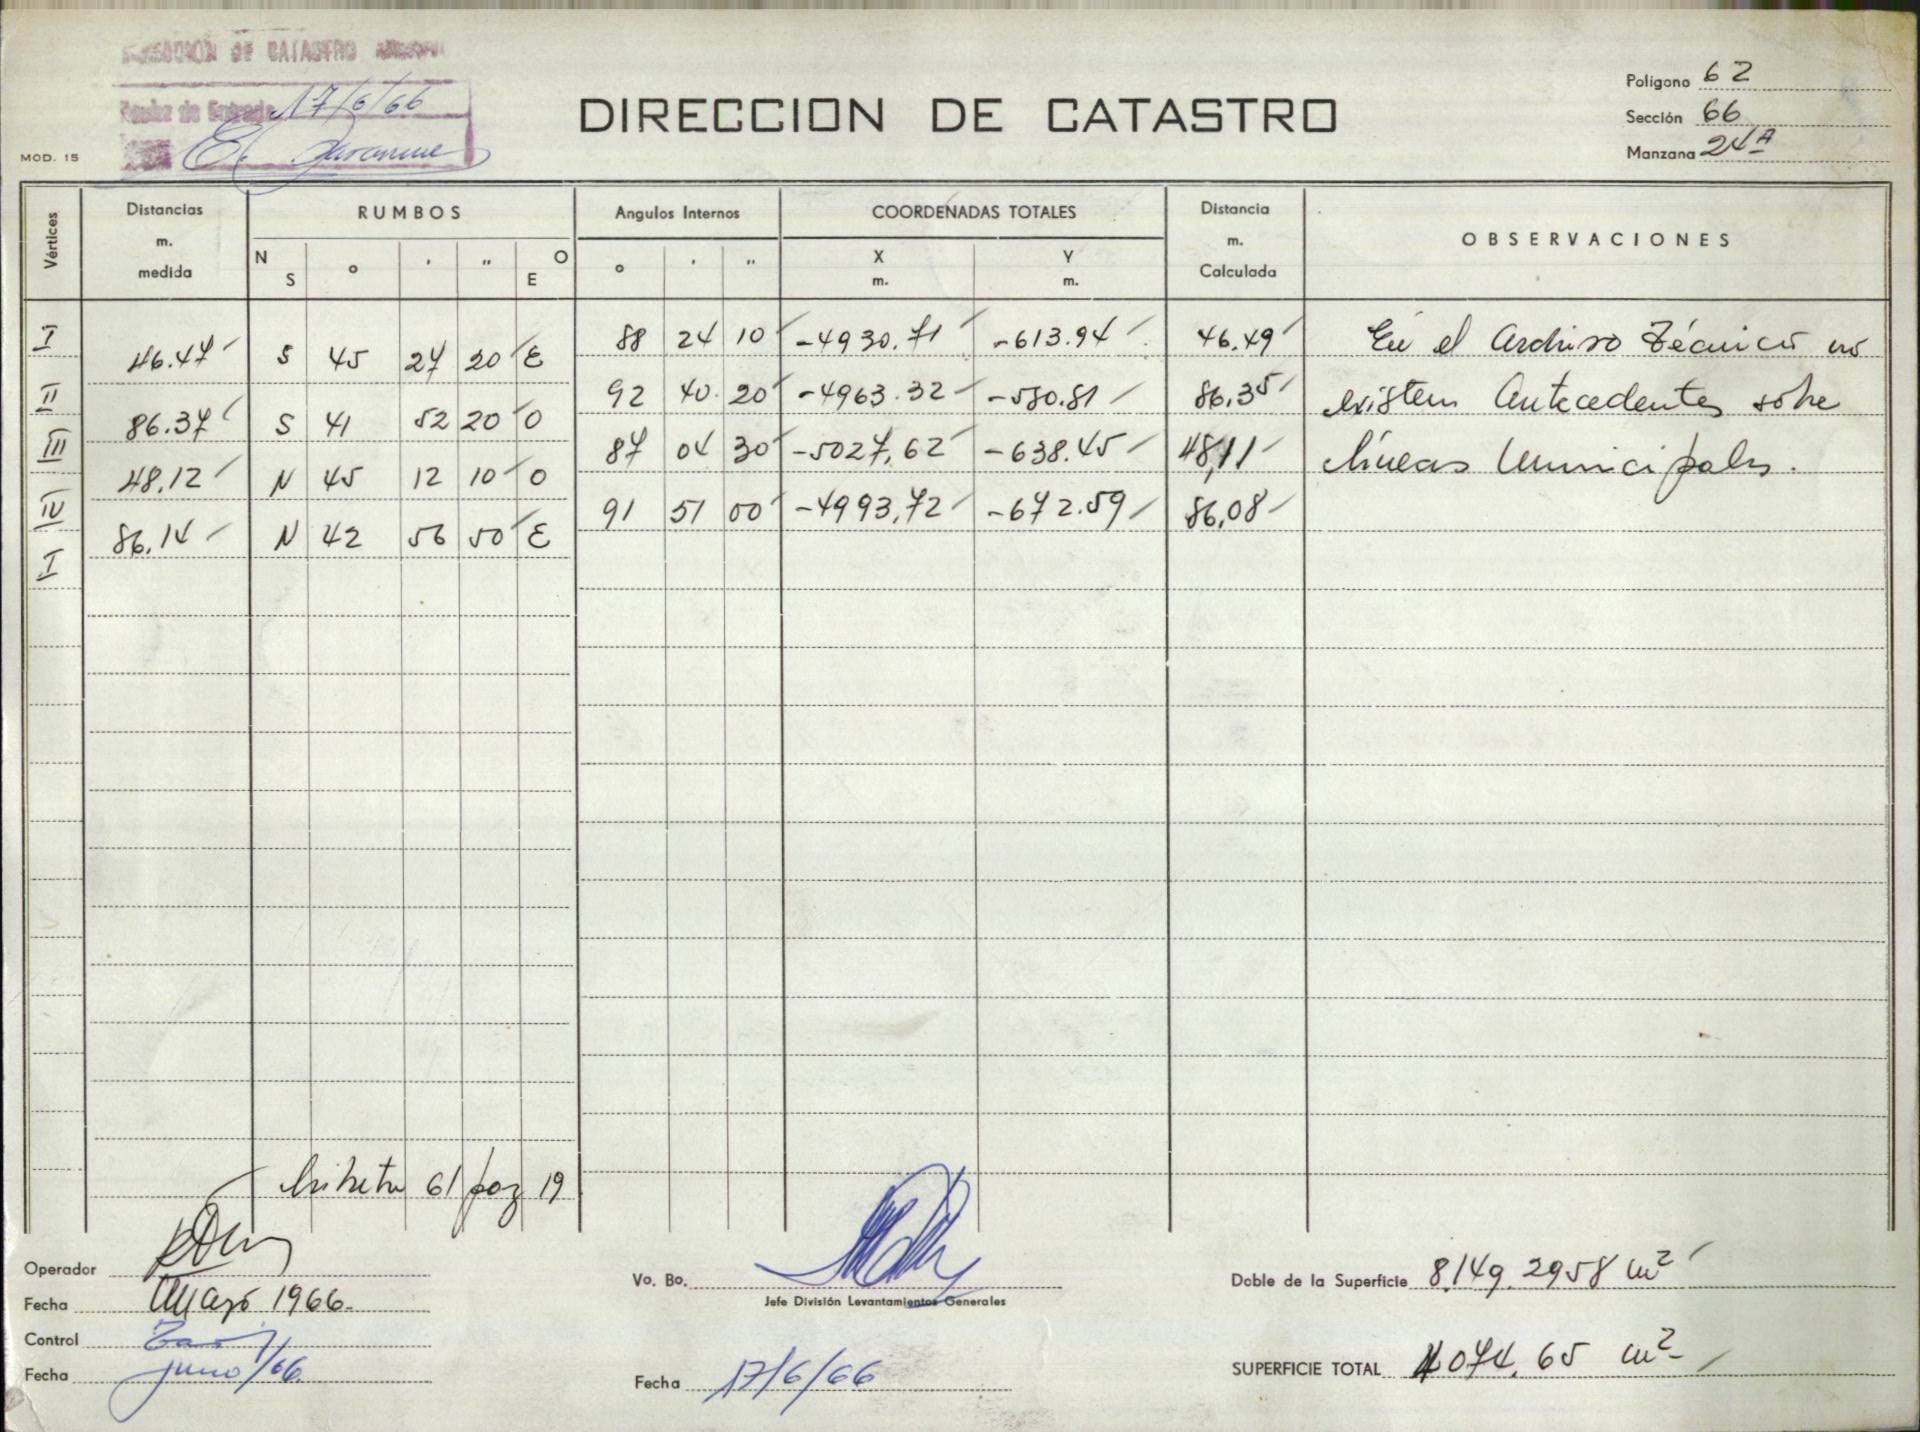 DIRECCION DE CATASTRO
Fecha de Entrada 17/6/66
MOD. 15
DIRECCION DE CATASTRO
Polígono 62
Sección 66
Manzana 24A
Vértices Distancias m. medida RUMBOS Angulos Internos COORDENADAS TOTALES Distancia m. Calculada OBSERVACIONES
N S ° ' " O E ° ' " X m. Y m.
I 88 24 10 -4930.71 -613.94 46.49 En el Archivo Técnico no
46.47 S 45 27 20 E
II 92 40 20 -4963.32 -580.81 86.35 existen Antecedentes sobre
86.37 S 41 52 20 O
III 87 04 30 -5027,62 -638.45 48,11 Líneas Municipales.
48,12 N 45 12 10 O
IV 91 51 00 -4993,72 -672.59 86,08
86,14 N 42 56 50 E
I
Libreta 61 pag 19
Operador
Fecha Mayo 1966.
Control
Fecha junio/66
Vo. Bo.
Jefe División Levantamientos Generales
Fecha 17/6/66
Doble de la Superficie 8.149.2958 m2
SUPERFICIE TOTAL 4.074,65 m2